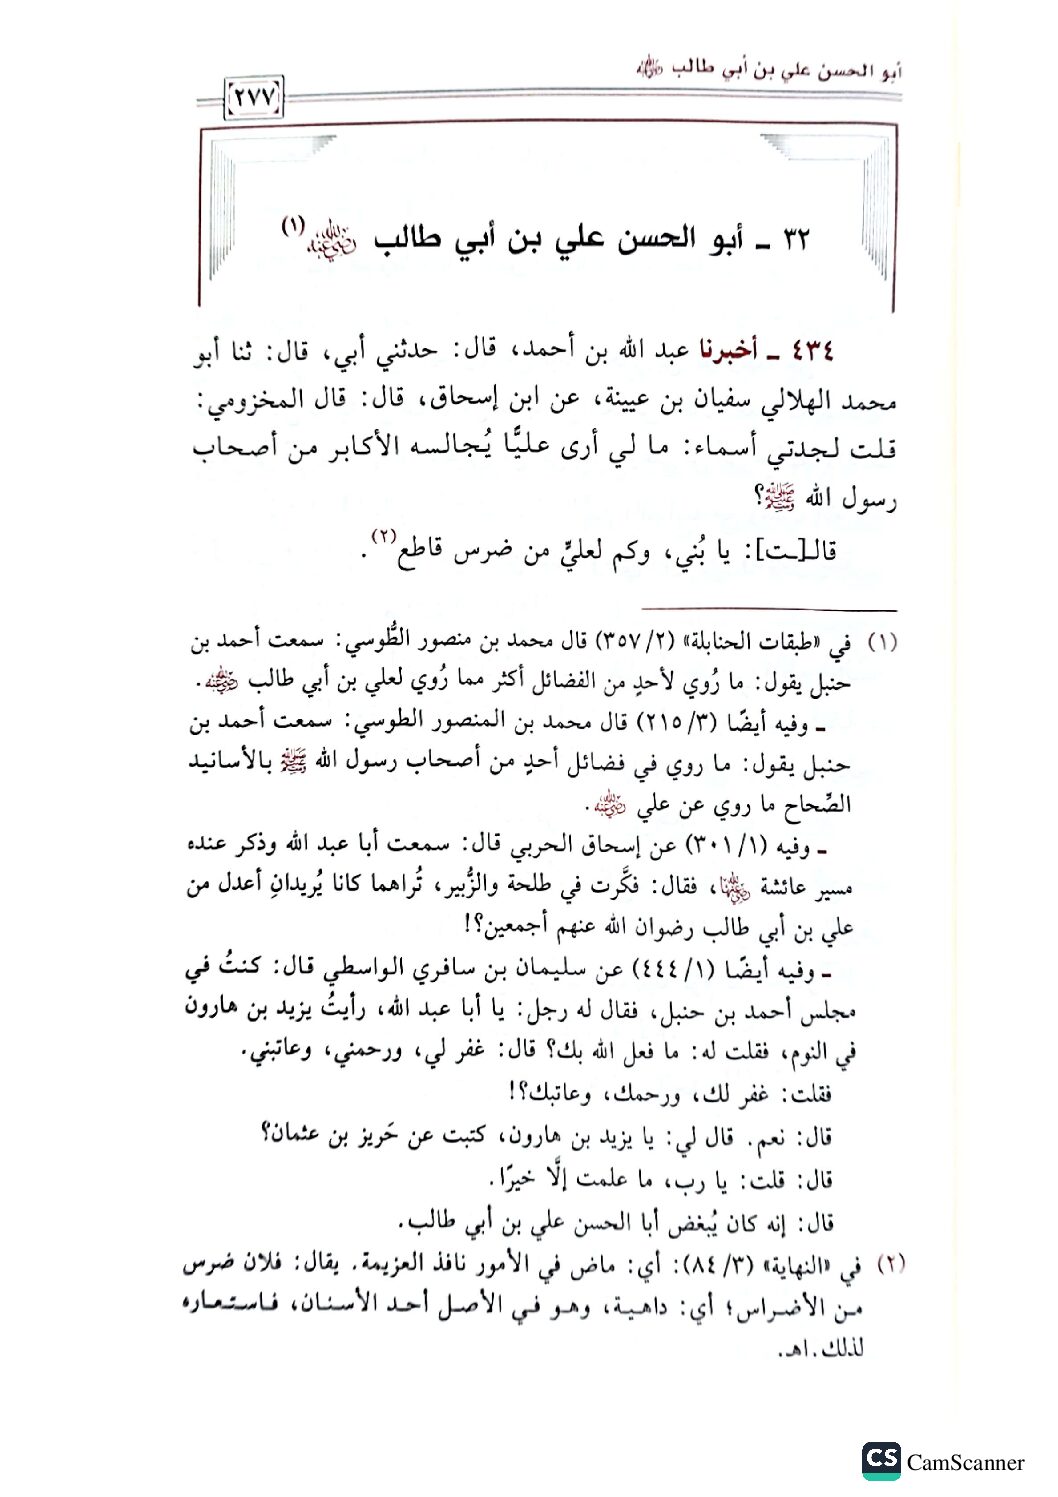 أبو الحسن علي بن أبي طالب ﵁
٢٧٧
٣٢ ـ أبو الحسن علي بن أبي طالب ﵁(١)
٤٣٤ ـ أخبرنا عبد الله بن أحمد، قال: حدثني أبي، قال: ثنا أبو
محمد الهلالي سفيان بن عيينة، عن ابن إسحاق، قال: قال المخزومي:
قلت لجدتي أسماء: ما لي أرى عليًّا يُجالسه الأكابر من أصحاب
رسول الله ﷺ؟
قالـ[ـت]: يا بُني، وكم لعليٍّ من ضرس قاطع(٢).
(١) في «طبقات الحنابلة» (٣٥٧/٢) قال محمد بن منصور الطُّوسي: سمعت أحمد بن
حنبل يقول: ما رُوي لأحدٍ من الفضائل أكثر مما رُوي لعلي بن أبي طالب ﵁.
ـ وفيه أيضًا (٢١٥/٣) قال محمد بن المنصور الطوسي: سمعت أحمد بن
حنبل يقول: ما روي في فضائل أحدٍ من أصحاب رسول الله ﷺ بالأسانيد
الصِّحاح ما روي عن علي ﵁.
ـ وفيه (٣٠١/١) عن إسحاق الحربي قال: سمعت أبا عبد الله وذكر عنده
مسير عائشة ﵂، فقال: فكَّرت في طلحة والزُّبير، تُراهما كانا يُريدانِ أعدل من
علي بن أبي طالب رضوان الله عنهم أجمعين؟!
ـ وفيه أيضًا (٤٤٤/١) عن سليمان بن سافري الواسطي قال: كنتُ في
مجلس أحمد بن حنبل، فقال له رجل: يا أبا عبد الله، رأيتُ يزيد بن هارون
في النوم، فقلت له: ما فعل الله بك؟ قال: غفر لي، ورحمني، وعاتبني.
فقلت: غفر لك، ورحمك، وعاتبك؟!
قال: نعم. قال لي: يا يزيد بن هارون، كتبت عن حَريز بن عثمان؟
قال: قلت: يا رب، ما علمت إلَّا خيرًا.
قال: إنه كان يُبغض أبا الحسن علي بن أبي طالب.
(٢) في «النهاية» (٨٤/٣): أي: ماض في الأمور نافذ العزيمة. يقال: فلان ضرس
من الأضراس؛ أي: داهية، وهو في الأصل أحد الأسنان، فاستعاره
لذلك.اهـ.
CS CamScanner